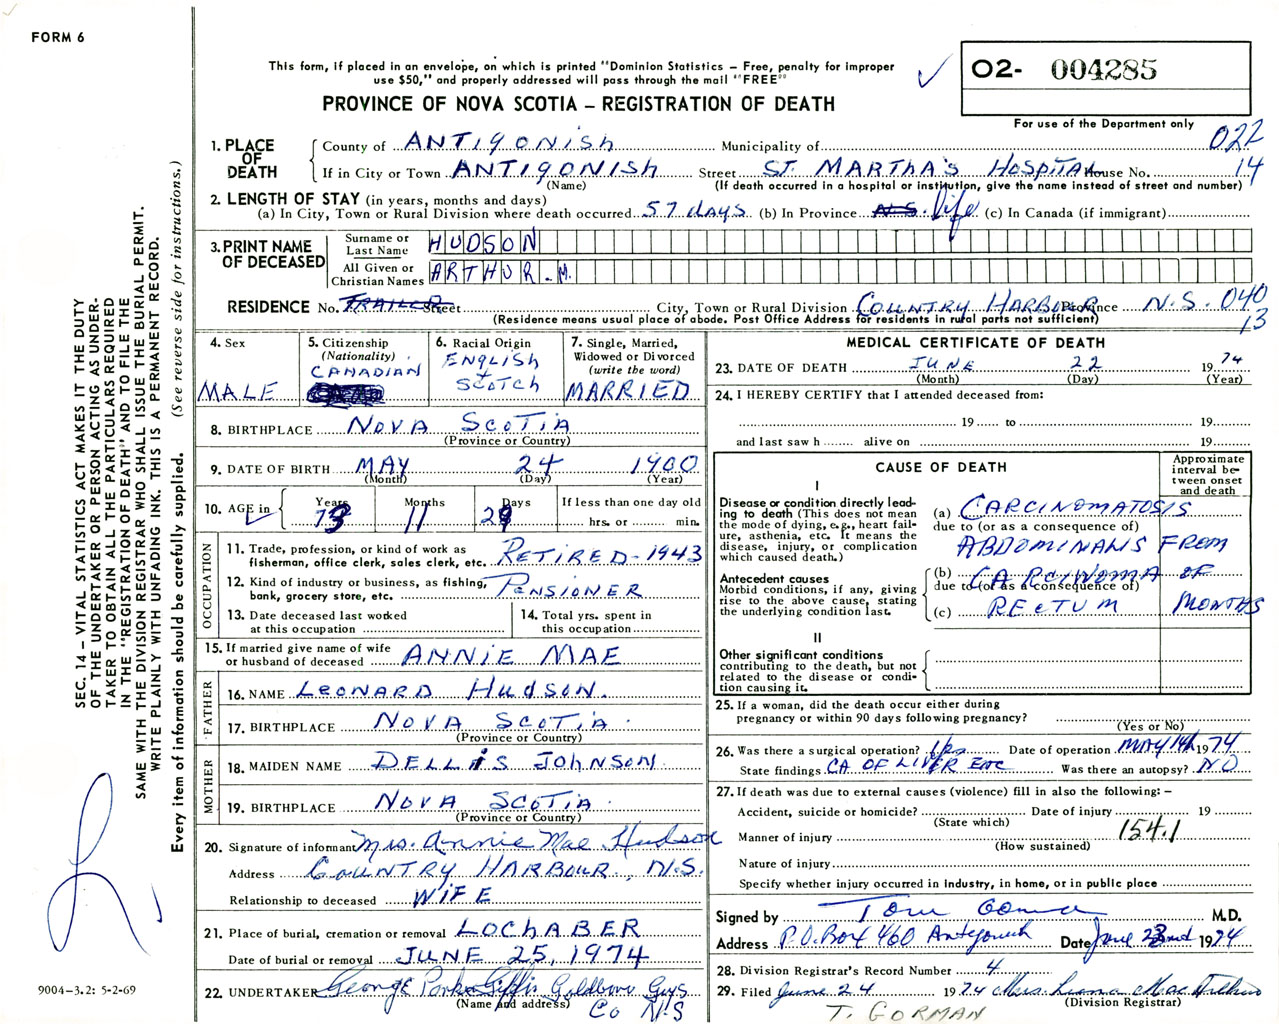 FORM 6
This form, if placed in an envelope, on which is printed "Dominion Statistics – Free, penalty for improper
use $50," and properly addressed will pass through the mail "FREE"
O2- 004285
PROVINCE OF NOVA SCOTIA – REGISTRATION OF DEATH
For use of the Department only
022
14
1. PLACE OF DEATH
County of ANTIGONISH Municipality of
If in City or Town ANTIGONISH Street ST. MARTHA'S HOSPITAL House No.
(Name) (If death occurred in a hospital or institution, give the name instead of street and number)
2. LENGTH OF STAY (in years, months and days)
(a) In City, Town or Rural Division where death occurred 57 days (b) In Province N.S. life (c) In Canada (if immigrant)
3. PRINT NAME OF DECEASED
Surname or Last Name HUDSON
All Given or Christian Names ARTHUR. M.
RESIDENCE No. TRAILER Street City, Town or Rural Division COUNTRY HARBOUR Province N.S. 040
(Residence means usual place of abode. Post Office Address for residents in rural parts not sufficient) 13
4. Sex
MALE
5. Citizenship
(Nationality)
CANADIAN
6. Racial Origin
ENGLISH
+
SCOTCH
7. Single, Married,
Widowed or Divorced
(write the word)
MARRIED
8. BIRTHPLACE NOVA SCOTIA
(Province or Country)
9. DATE OF BIRTH MAY 24 1900
(Month) (Day) (Year)
10. AGE in
Years Months Days If less than one day old
73 11 29 hrs. or min.
OCCUPATION
11. Trade, profession, or kind of work as
fisherman, office clerk, sales clerk, etc. RETIRED-1943
12. Kind of industry or business, as fishing,
bank, grocery store, etc. PENSIONER
13. Date deceased last worked
at this occupation
14. Total yrs. spent in
this occupation
15. If married give name of wife
or husband of deceased ANNIE MAE
FATHER
16. NAME LEONARD HUDSON.
17. BIRTHPLACE NOVA SCOTIA.
(Province or Country)
MOTHER
18. MAIDEN NAME DELLIS JOHNSON.
19. BIRTHPLACE NOVA SCOTIA.
(Province or Country)
20. Signature of informant Mrs. Annie Mae Hudson
Address COUNTRY HARBOUR, N.S.
Relationship to deceased WIFE
21. Place of burial, cremation or removal LOCHABER
Date of burial or removal JUNE 25, 1974
22. UNDERTAKER George Parker Giffin Goldboro Guys
(Name and address) Co N.S
MEDICAL CERTIFICATE OF DEATH
23. DATE OF DEATH JUNE 22 1974
(Month) (Day) (Year)
24. I HEREBY CERTIFY that I attended deceased from:
19 to 19
and last saw h alive on 19
CAUSE OF DEATH
Approximate
interval be-
tween onset
and death
I
Disease or condition directly lead-
ing to death (This does not mean
the mode of dying, e.g., heart fail-
ure, asthenia, etc. It means the
disease, injury, or complication
which caused death.)
(a) CARCINOMATOSIS
due to (or as a consequence of)
ABDOMINALIS FROM
Antecedent causes
Morbid conditions, if any, giving
rise to the above cause, stating
the underlying condition last.
(b) CARCINOMA OF
due to (or as a consequence of)
(c) RECTUM MONTHS
II
Other significant conditions
contributing to the death, but not
related to the disease or condi-
tion causing it.
25. If a woman, did the death occur either during
pregnancy or within 90 days following pregnancy?
(Yes or No)
26. Was there a surgical operation? Yes Date of operation MAY 14th 1974
State findings CA OF LIVER ETC Was there an autopsy? NO
27. If death was due to external causes (violence) fill in also the following: –
Accident, suicide or homicide? Date of injury 19
(State which)
Manner of injury 154.1
(How sustained)
Nature of injury
Specify whether injury occurred in Industry, in home, or in public place
Signed by Tom Gorman M.D.
Address P.O. Box 460 Antigonish Date June 23nd 1974
28. Division Registrar's Record Number 4
29. Filed June 24 1974 Mrs. Liana MacArthur
(Division Registrar)
T. GORMAN
SEC. 14 – VITAL STATISTICS ACT MAKES IT THE DUTY
OF THE UNDERTAKER OR PERSON ACTING AS UNDER-
TAKER TO OBTAIN ALL THE PARTICULARS REQUIRED
IN THE "REGISTRATION OF DEATH" AND TO FILE THE
SAME WITH THE DIVISION REGISTRAR WHO SHALL ISSUE THE BURIAL PERMIT.
WRITE PLAINLY WITH UNFADING INK. THIS IS A PERMANENT RECORD.
Every item of information should be carefully supplied. (See reverse side for instructions.)
9004-3.2: 5-2-69